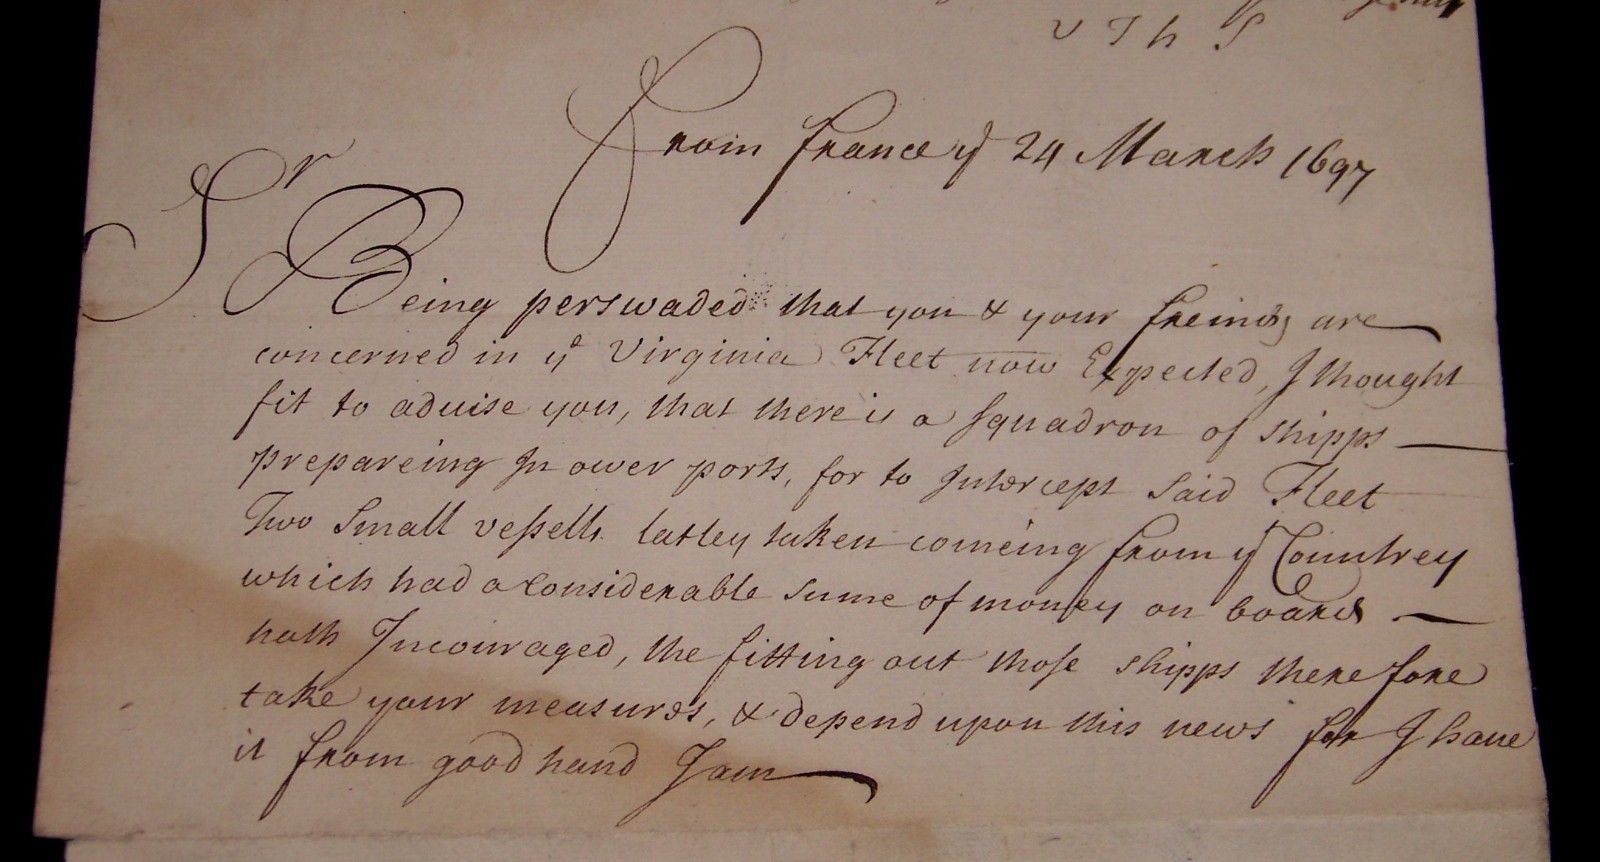 V J h S
From france ye 24 March 1697
Sr
Being perswaded that you & your freinds are
concerned in ye Virginia Fleet now Expected, I thought
fit to aduise you, that there is a squadron of shipps
prepareing In ower ports, for to Intercept said Fleet
Two small vessells latley taken comeing from ye Countrey
which had a Considerable sume of money on board
hath Incouraged, the fitting out those shipps therefore
take your measures, & depend upon this news for I haue
it from good hand I am